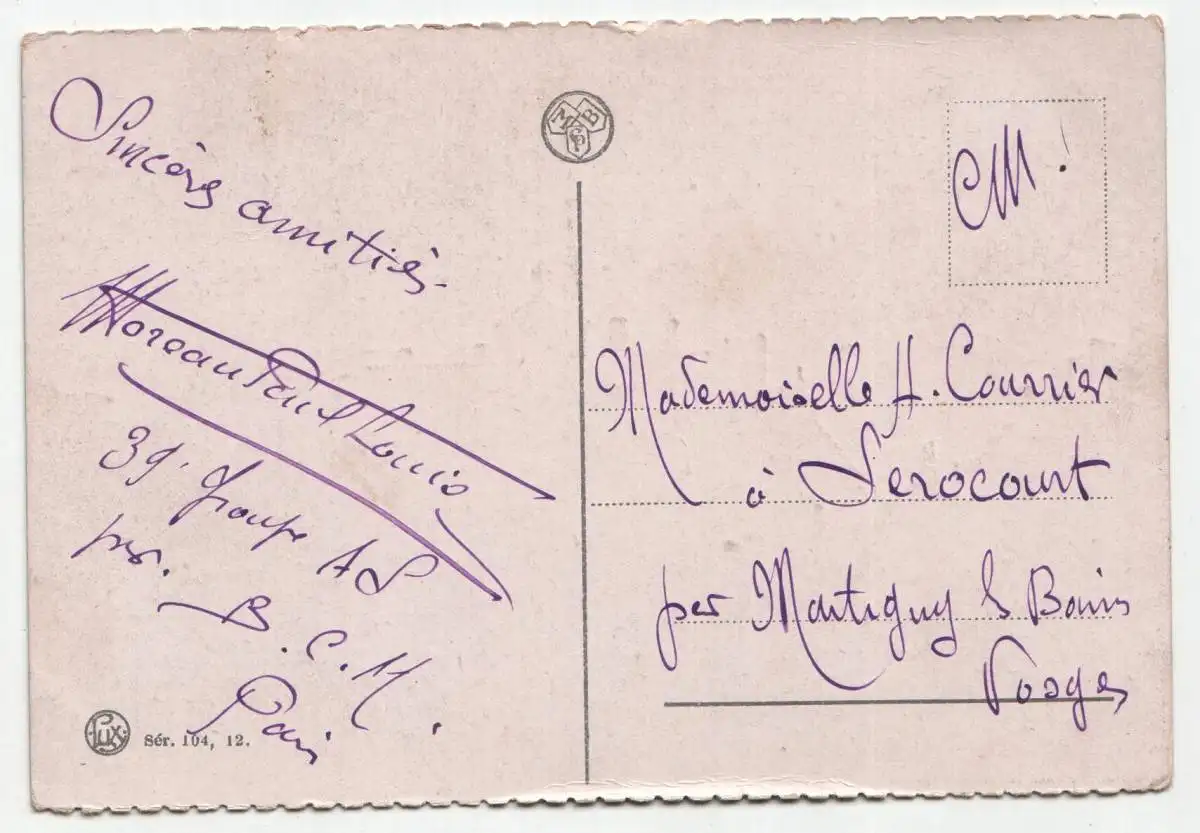 Sincères amitiés.
Moreau Paul Louis
39. Groupe AS
par. B.C.M.
Paris
Lux
Sér. 104, 12.
M B
CM!
Mademoiselle H. Courrier
à Serocourt
par Martigny ls Bains
Vosges